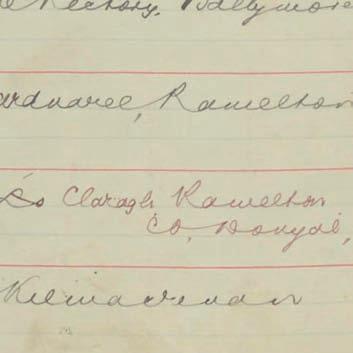 Rectory, Ballymore
Ardnaree, Ramelton
Do Claragh Ramelton
Co, Donegal,
Kilmacrenan